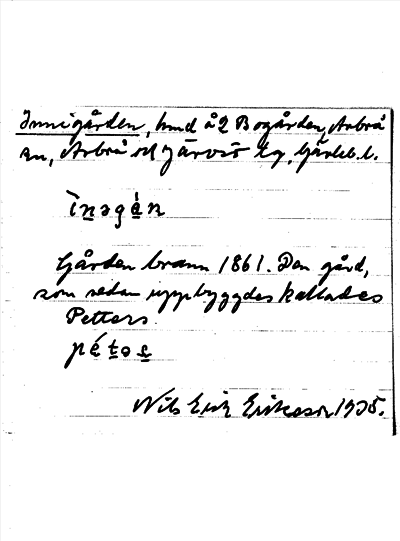 Innigården, hmd å 2 Bogården, Arbrå
sn, Arbrå och Järvsö tg, Gävleb. l.
ìnəgán
Gården brann 1861. Den gård,
som sedan uppbyggdes kallades
Petters
pétəs
Nils Erik Eriksson 1935.